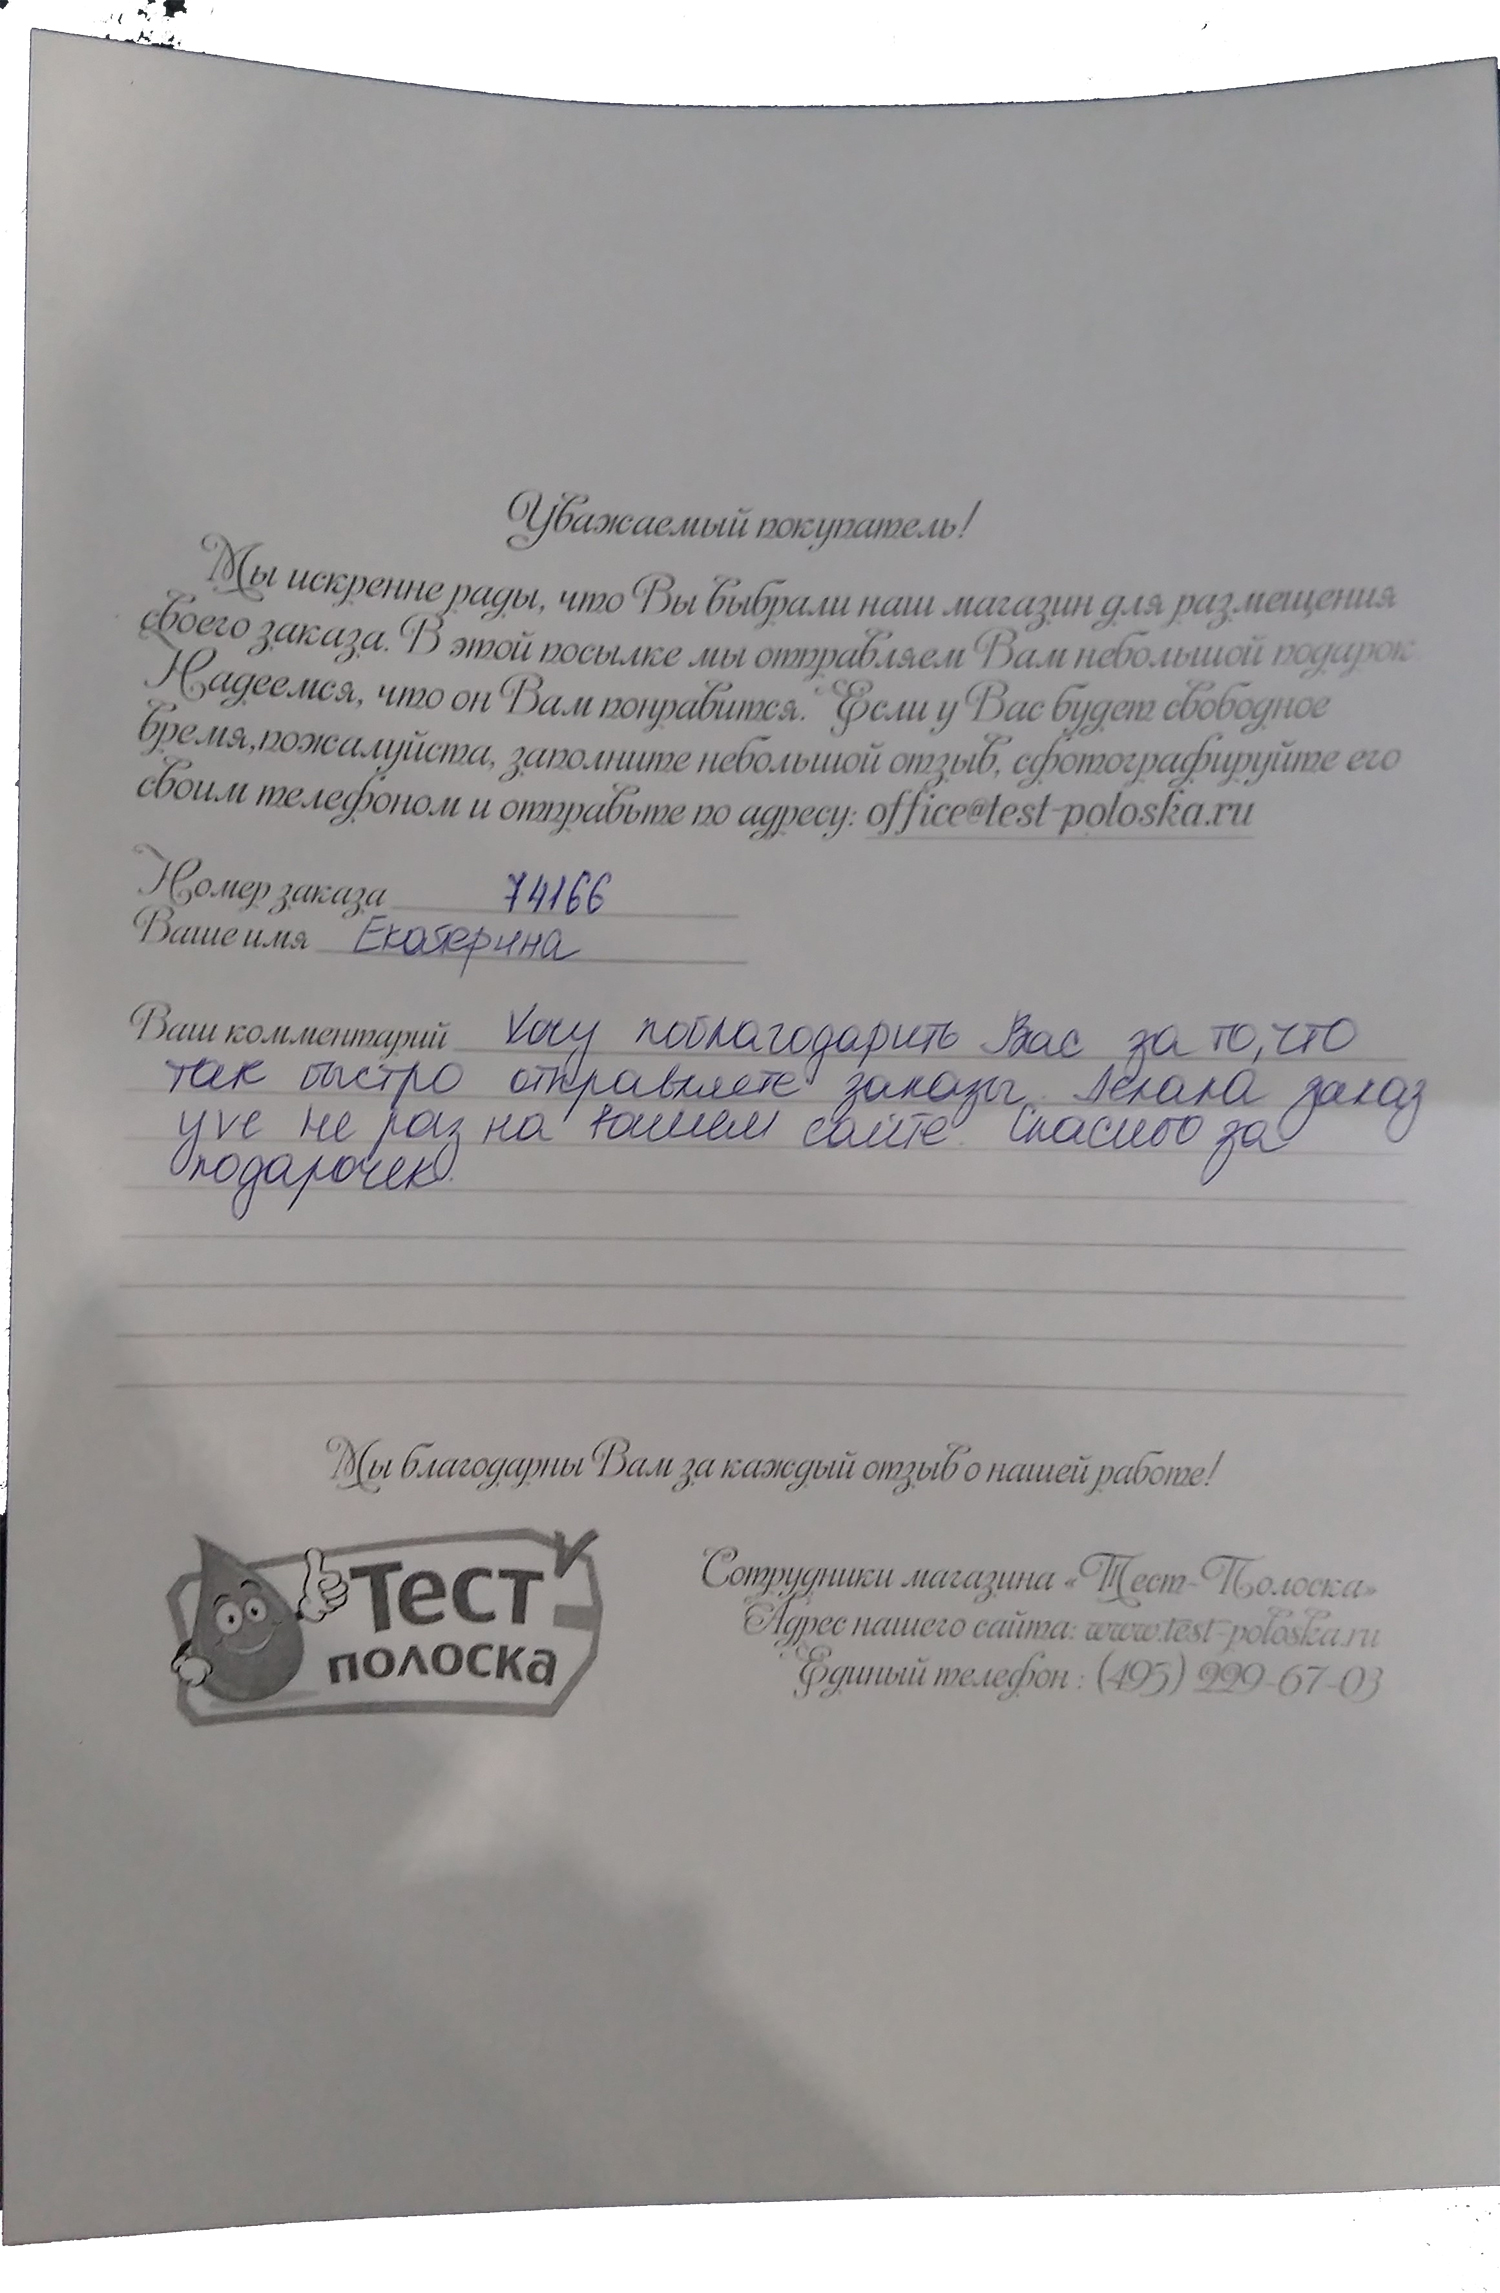 Уважаемый покупатель!
Мы искренне рады, что Вы выбрали наш магазин для размещения
своего заказа. В этой посылке мы отправляем Вам небольшой подарок.
Надеемся, что он Вам понравится. Если у Вас будет свободное
время,пожалуйста, заполните небольшой отзыв, сфотографируйте его
своим телефоном и отправьте по адресу: office@test-poloska.ru
Номер заказа 74166
Ваше имя Екатерина
Ваш комментарий Хочу поблагодарить Вас за то, что
так быстро отправляете заказы. Делала заказ
уже не раз на вашем сайте. Спасибо за
подарочек.
Мы благодарны Вам за каждый отзыв о нашей работе!
Тест
полоска
Сотрудники магазина «Тест-Полоска»
Адрес нашего сайта: www.test-poloska.ru
Единый телефон : (495) 229-67-03